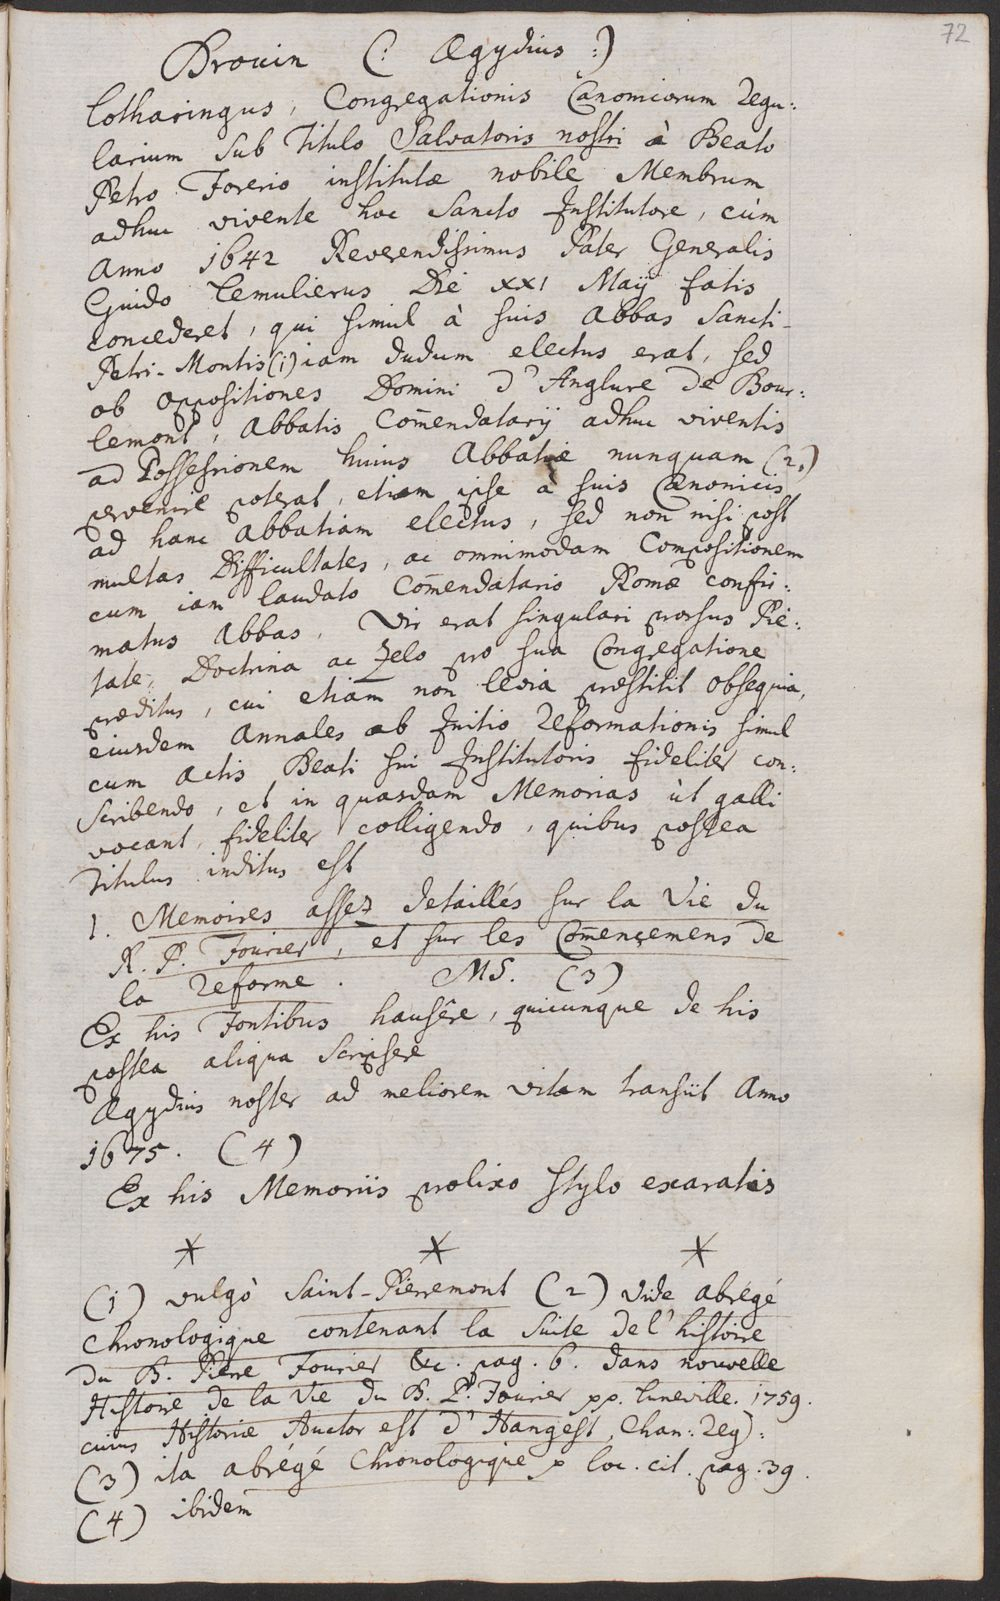 72
Brouin (: Ægydius :)
Lotharingus, Congregationis Canonicorum Regu:
larium sub Titulo Salvatoris nostri à Beato
Petro Forerio institutæ nobile Membrum
adhuc vivente hoc Sancto Institutore, cùm
Anno 1642 Reverendissimus Pater Generalis
Guido Lemulierus Die XXI Maij fatis
concederet, qui simul à suis Abbas Sancti-
Petri-Montis (1) iam dudum electus erat, sed
ob oppositiones Domini d'Anglure de Bour:
lemont, Abbatis Com̄endatarij adhuc viventis
ad Possessionem huius Abbatiæ nunquam (2.)
pervenire poterat, etiam ipse à suis Canonicis
ad hanc Abbatiam electus, sed non nisi post
multas Difficultates, ac omnimodam Compositionem
cum iam laudato Com̄endatario Romæ confir:
matus Abbas. Vir erat singulari prorsus Pie:
tate, Doctrina ac Zelo pro sua Congregatione
præditus, cui etiam non levia præstitit obsequia,
eiusdem Annales ab Initio Reformationis simul
cum actis Beati sui Institutoris fideliter con:
scribendo, et in quasdam Memorias ùt galli
vocant, fideliter colligendo, quibus postea
Titulus inditus est
1. Memoires assez detaillés sur la Vie du
R. P. Fourier, et sur les Com̄ençemens de
la Reforme. MS. (3)
Ex his Fontibus hausêre, quicunque de his
postea aliqua scripsere
Ægydius noster ad meliorem vitam transiit Anno
1675. (4)
Ex his Memoriis prolixo stylo exaratis
* * *
(1) vulgò Saint-Pierremont (2) vide abrégé
Chronologique contenant la Suite de l'histoire
du B. Piere Fourier &c. pag. 6. dans nouvelle
Histoire de la Vie du B. P. Fourier pp. Luneville. 1759.
cuius Historiæ Auctor est d'Hangest, Chan: Reg:
(3) ita abrégé Chronologique p loc. cit. pag. 39.
(4) ibidem